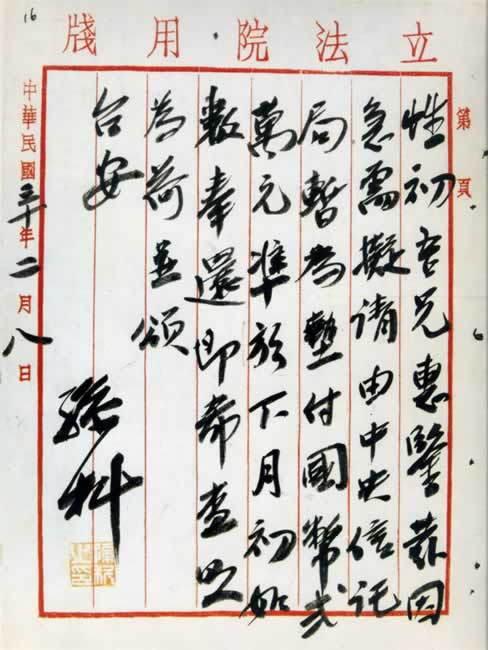 16
立法院用牋
第 頁
性初吾兄惠鑒茲因
急需擬請由中央信託
局暫為墊付國幣弍
萬元準於下月初如
數奉還即希查照
為荷並頌
台安
孫科
孫科之印
中華民國三十年二月八日